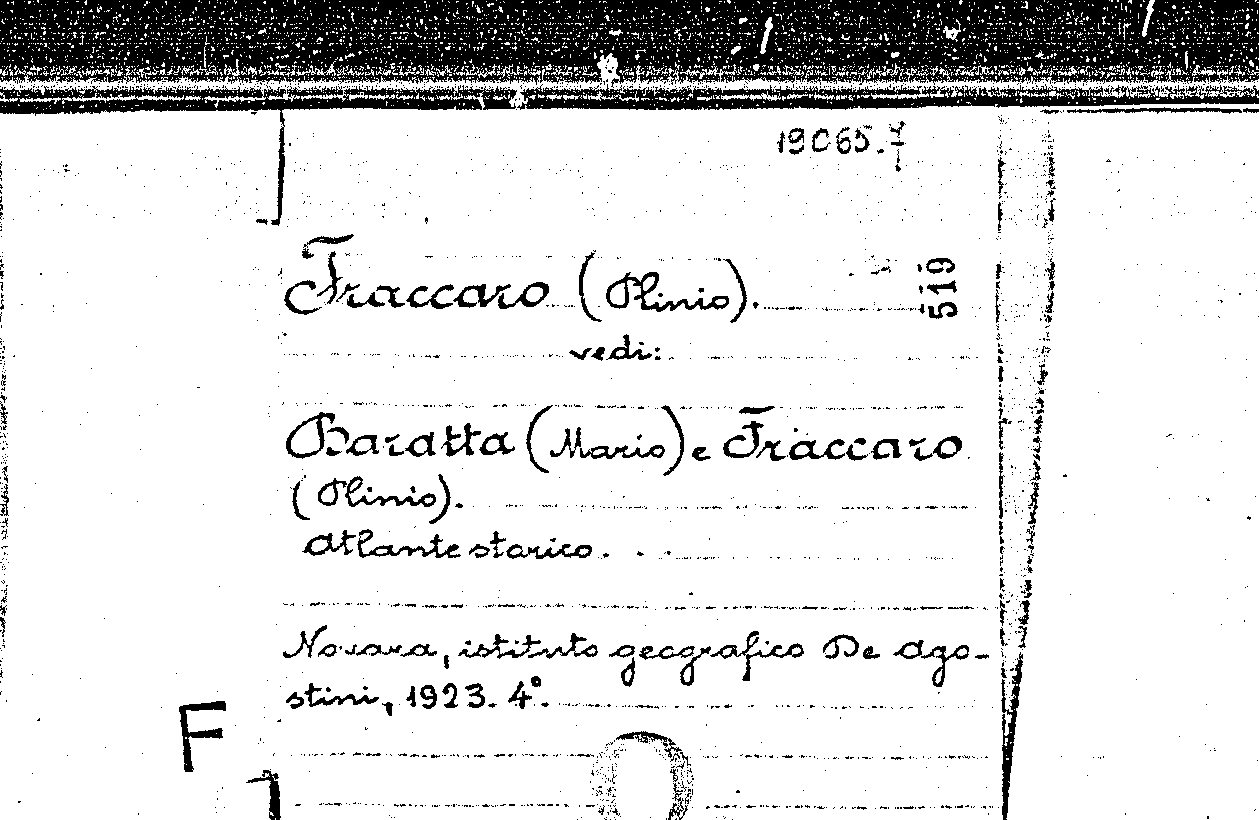 19065.7
Fraccaro (Plinio).
519
vedi:
Baratta (Mario) e Fraccaro
(Plinio).
Atlante storico. . .
Novara, istituto geografico De Ago-
stini, 1923. 4°.
F